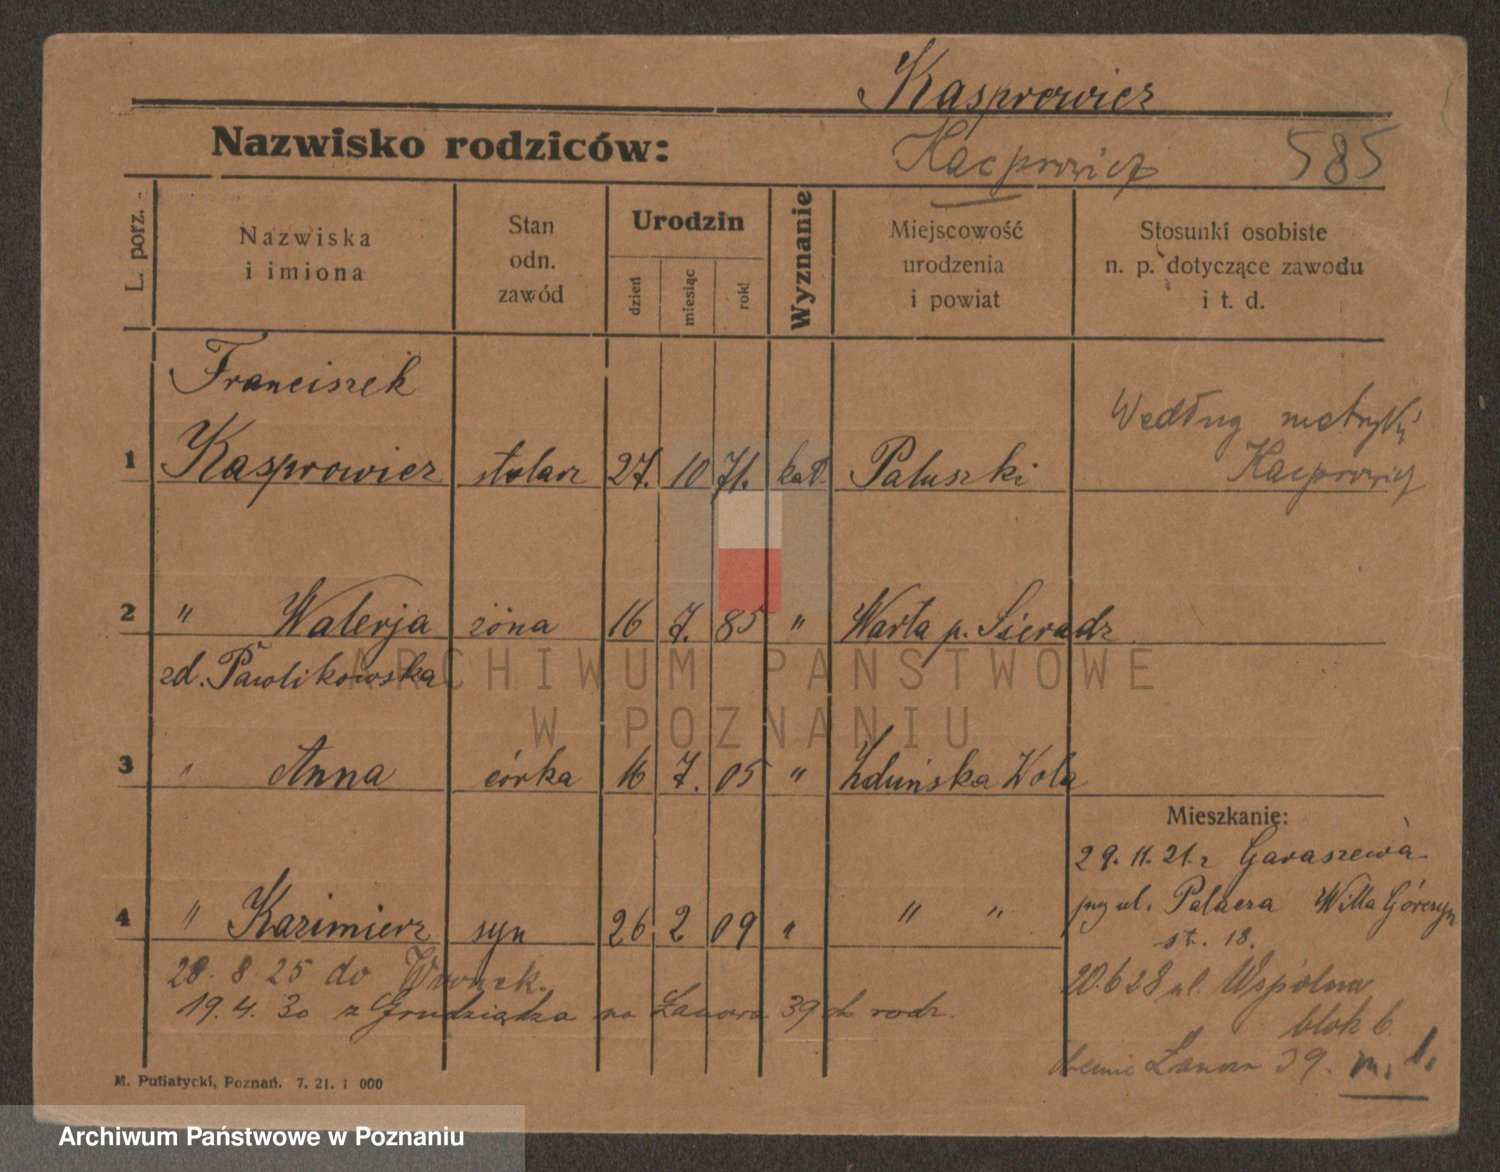 Kasprowicz
Nazwisko rodziców: Kacprowicz 585
L. porz.
Nazwiska i imiona
Stan odn. zawód
Urodzin
dzień miesiąc rok
Wyznanie
Miejscowość urodzenia i powiat
Stosunki osobiste n. p. dotyczące zawodu i t. d.
Franciszek
1 Kasprowicz stolarz 27. 10 71. kat. Paluszki
Według metryki Kacprowicz
2 " Walerja żona 16 7. 85 " Warta p. Sieradz
zd. Pawlikowska
3 " Anna córka 16 7. 05 " Zduńska Wola
4 " Kazimierz syn 26 2 09 " " "
28. 8 25 do Wronek.
19. 4. 30 z Grudziądza na Łanowa 39 do rodz.
Mieszkanie:
29. 11. 21. r Garaszewa
przy ul. Palacza Willa Górczyn
st. 18.
20. 6 28 ul. Wspólna
blok 6.
Łanowa 39.
M. Putiatycki, Poznań. 7. 21. 1 000
ARCHIWUM PAŃSTWOWE
W POZNANIU
Archiwum Państwowe w Poznaniu